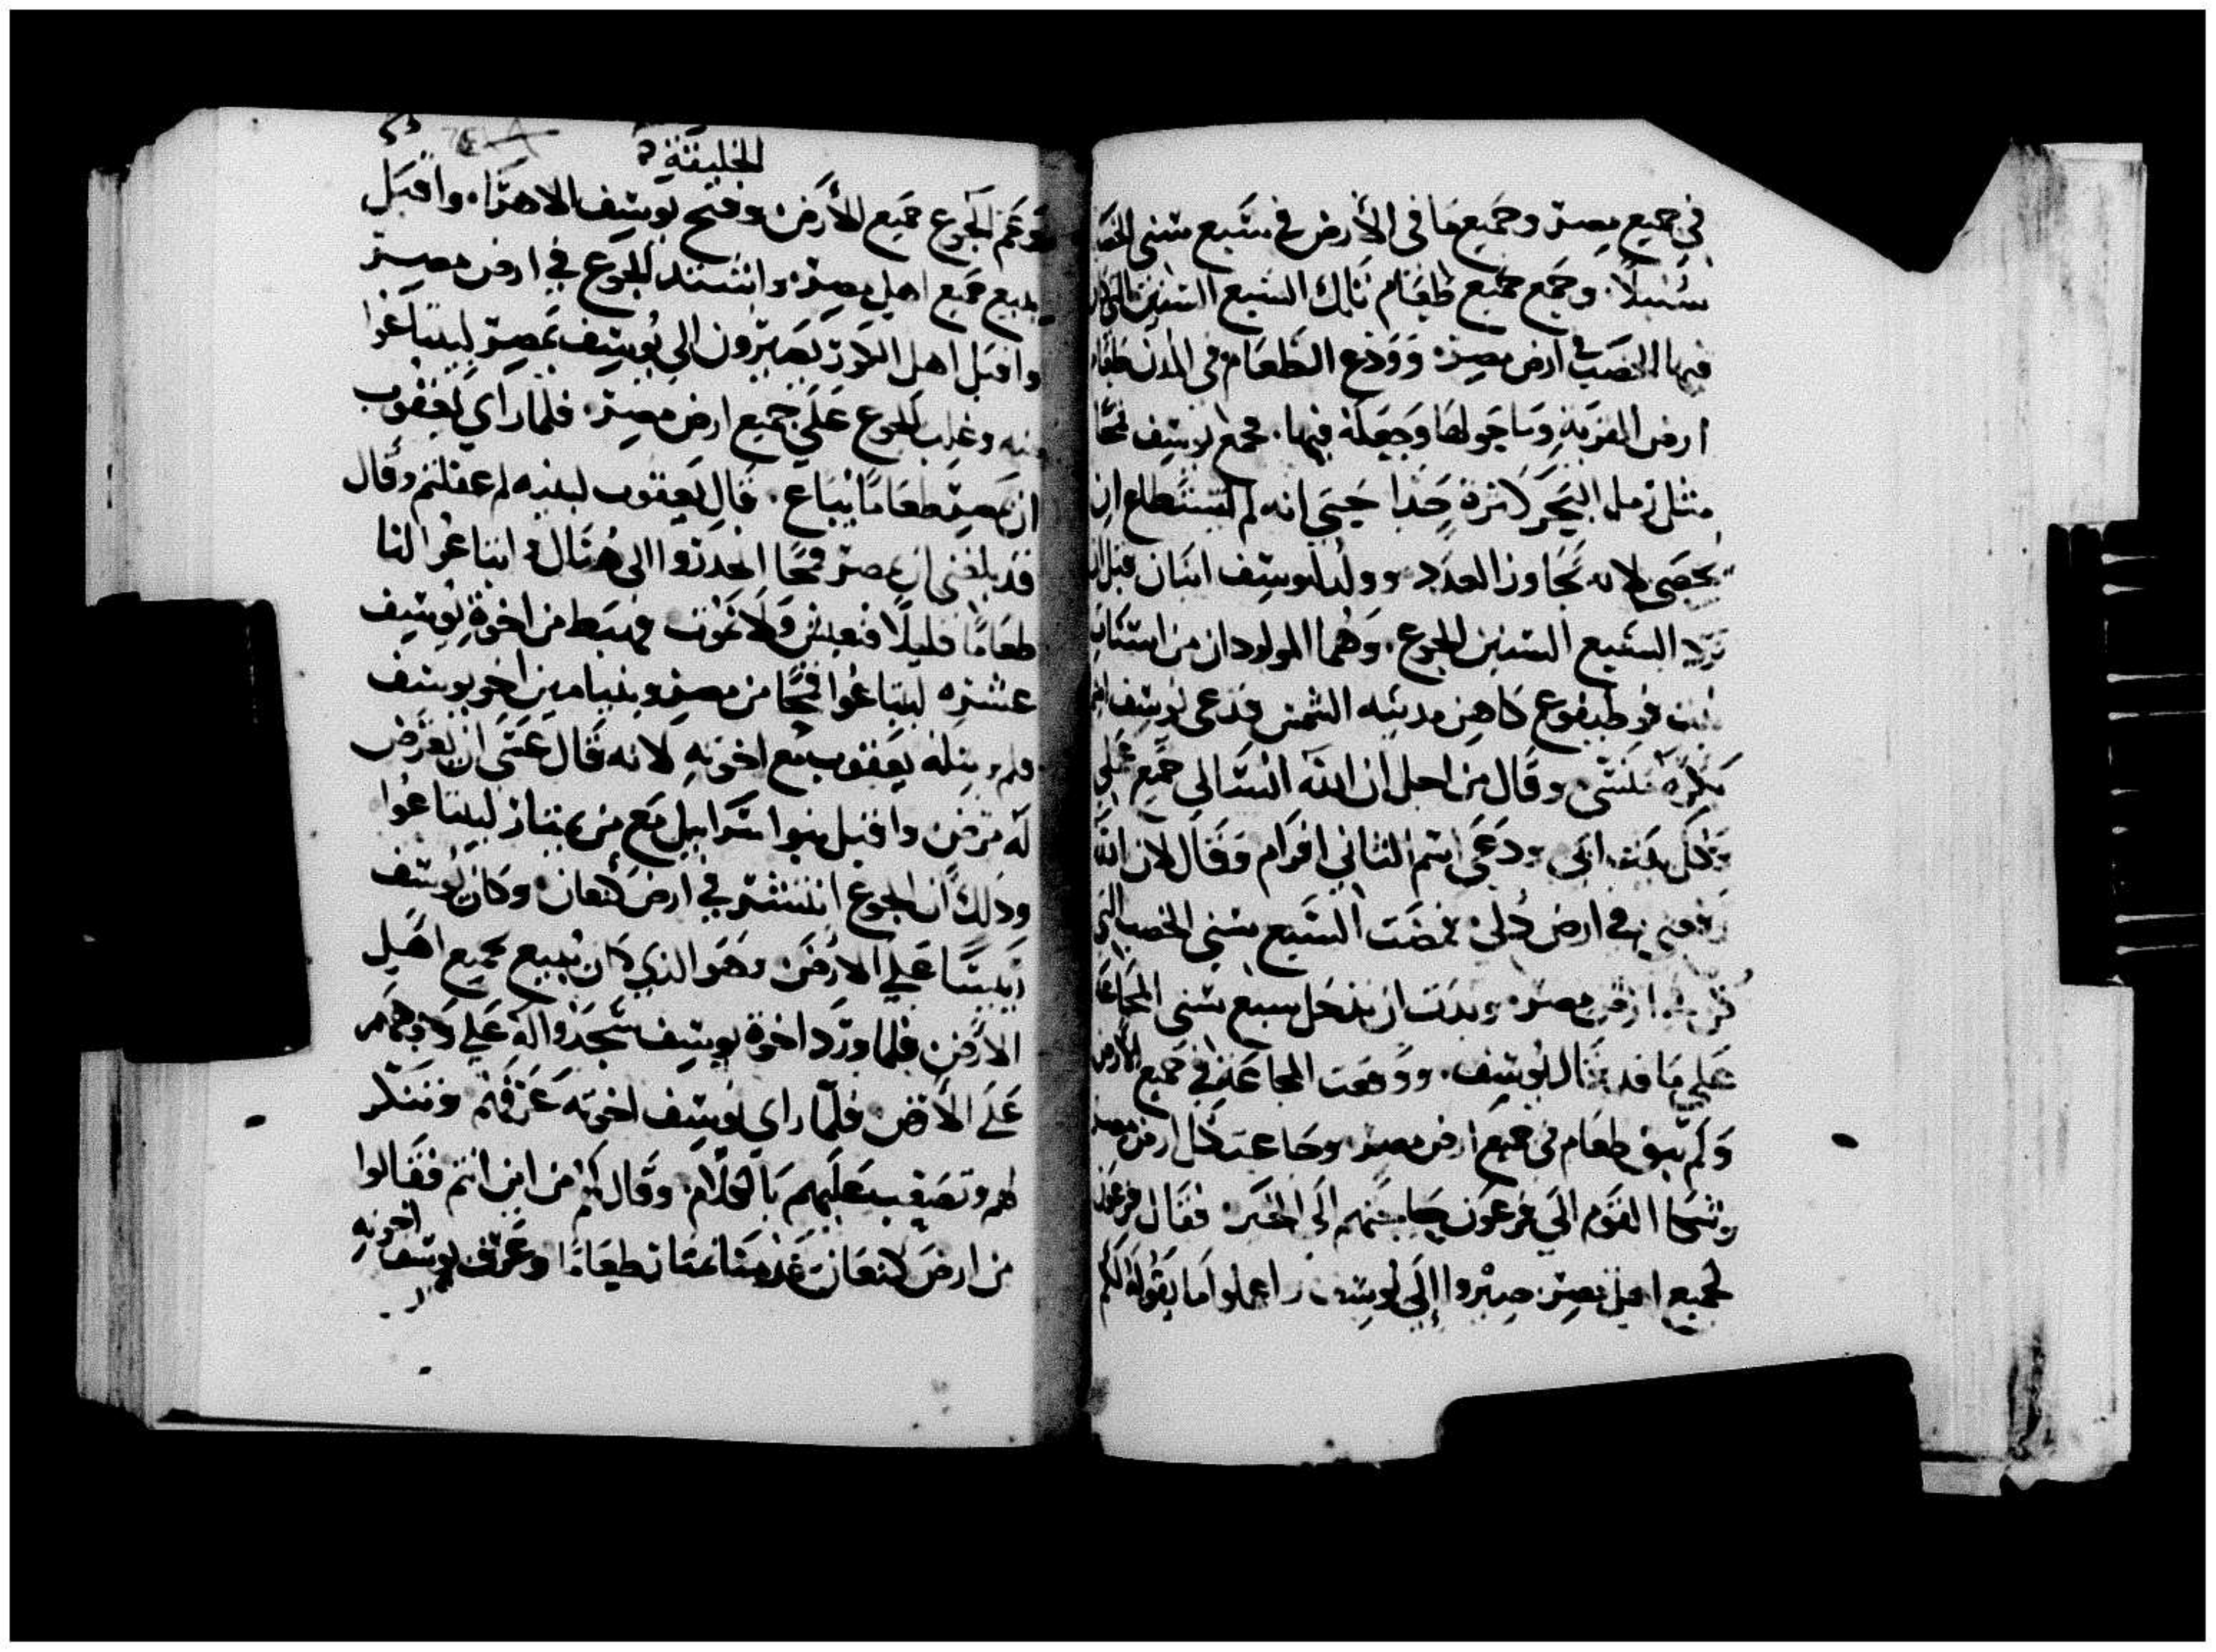 في جميع مصر وجميع ما في الأرض في سبع سني الخصب
سُنبلاً. وجمع جميع طعام تلك السبع السنين التي كان
فيها الخصب في ارض مصر وَوَدع الطعَام في المدن طعام
ارض القرية وما حولها وجعله فيها. فجمع يوسف قمحًا
مثل رمل البحر كثرة جدا حتي انه لم يستطاع ان
يحصي لانه تجاوز العدد وولد ليوسف ابنان قبل ان
ترد السبع السنين الجوع. وهُما المولودان من اسنات
بنت فوطيفوع كاهن مدينه الشمس فدعي يوسف اسم
بكره منسي وقال من اجل ان الله انساني جميع
وكل بيت ابي ودعي اسم الثاني افرام وَقال لان الله
في ارض ذُلي فمضت السبع سني الخصب التي
كن في ارض مصر وبدت ان تدخل سبع سني المجاعة
علي ما قد قال يوسف. ووقعت المجاعة في جميع الأرض
وَلم يبق طعام في جميع ارض مصر وجاعت كل ارض مصر
وشكا القوم الي فرعون حاجتهم الي الخبز فقال فرعون
لجميع اهل مصر صيروا إلي يوسف واعملوا ما يقوله لكم
الخليقة
وعَم الجوع جميع الأرض وفتح يوسف الاهراء. واقبل
يبيع جميع اهل مصر واشتد الجوع في ارض مصر
واقبل اهل الكور يصيرون الي يُوسف بمصر ليبتاعوا
منه وغلب الجوع عَلي جميع ارض مصر. فلما راي يعقوب
ان بمصر طعامًا يباع. قال يعقوب لبنيه لم غفلتم وقال
قد بلغني ان بمصر قمحًا انحدروا الي هُناك وابتاعُوا لنا
طعَامًا قليلًا فنعيش وَلا نمُوت فهبط من اخوة يوسف
عشره ليبتاعُوا قمحًا من مصر وبنيامين اخو يوسف
فلم يرسله يعقوب مع اخوته لانه قال عَسَي ان يعرض
لهَ مرض واقبل بنوا اسَراييل مَع من يمتار ليبتاعُوا
وذلك ان الجوع انتشر في ارض كنعان وكان يُوسف
رَييسًا عَلي الارض وهَو الذي كان يبيع لجميع اهَل
الارض فلما ورَد اخوة يوسف سَجدوا له علي وجوههم
عَلَي الأرض فلمّا راي يوسف اخوته عَرفهم وتنكر
لهم وتصَعب عليهم بَالكلام وقال لهم من اين انتم فقالوا
من ارض كنعان قدمنا نمتار طعَامًا وعَرف يوسف اخوته